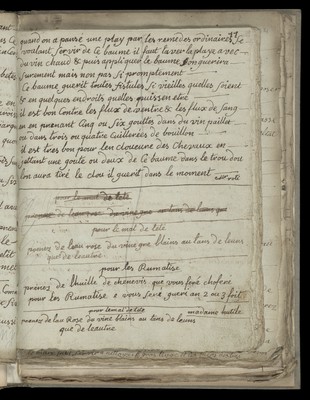 quand on a pansé une playe par les remedes ordinaires, se
voulant servir de ce baume il faut laver la playe avec
du vin chaud & puis appliquer le baume on guerira
surement mais non pas si promptement
Ce baume guerit toutes fistules si vieilles quelles soient
& en quelques endroits quelles puissent etre
il est bon contre les flux de ventre & les flux de sang
en en prenant cinq ou six gouttes dans du vin paillet
ou dans trois ou quatre cuillerees de bouillon
il est tres bon pour len cloueure des chevaux en
jettant une goute ou deux de ce baume dans le trou dou
lon aura tiré le clou il guerit dans le moment
pour le mal de tété
pour le mal de tété
prenes de leau rose du vinegre blains au tans de leuns
que de leautre
pour les Rumatise
prénes de lhuille de chenevis que vous feré chofere
pour les Rumatise & vous seré gueri an 2 ou 3 fois
pour le mal de tété
madame
prenes de lau Rose du viné blains au tens de leuns
que de leautre